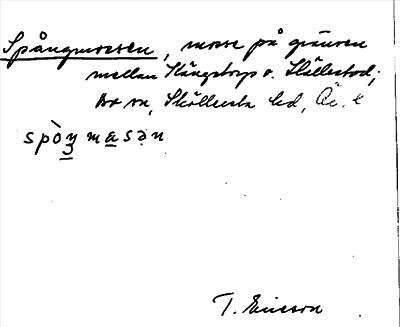 Spångmossen, mosse på gränsen
mellan Kångstorp o. Skållestad;
sn, Sköllersta hd, Ä.
spòŋ masən
T. Ericson